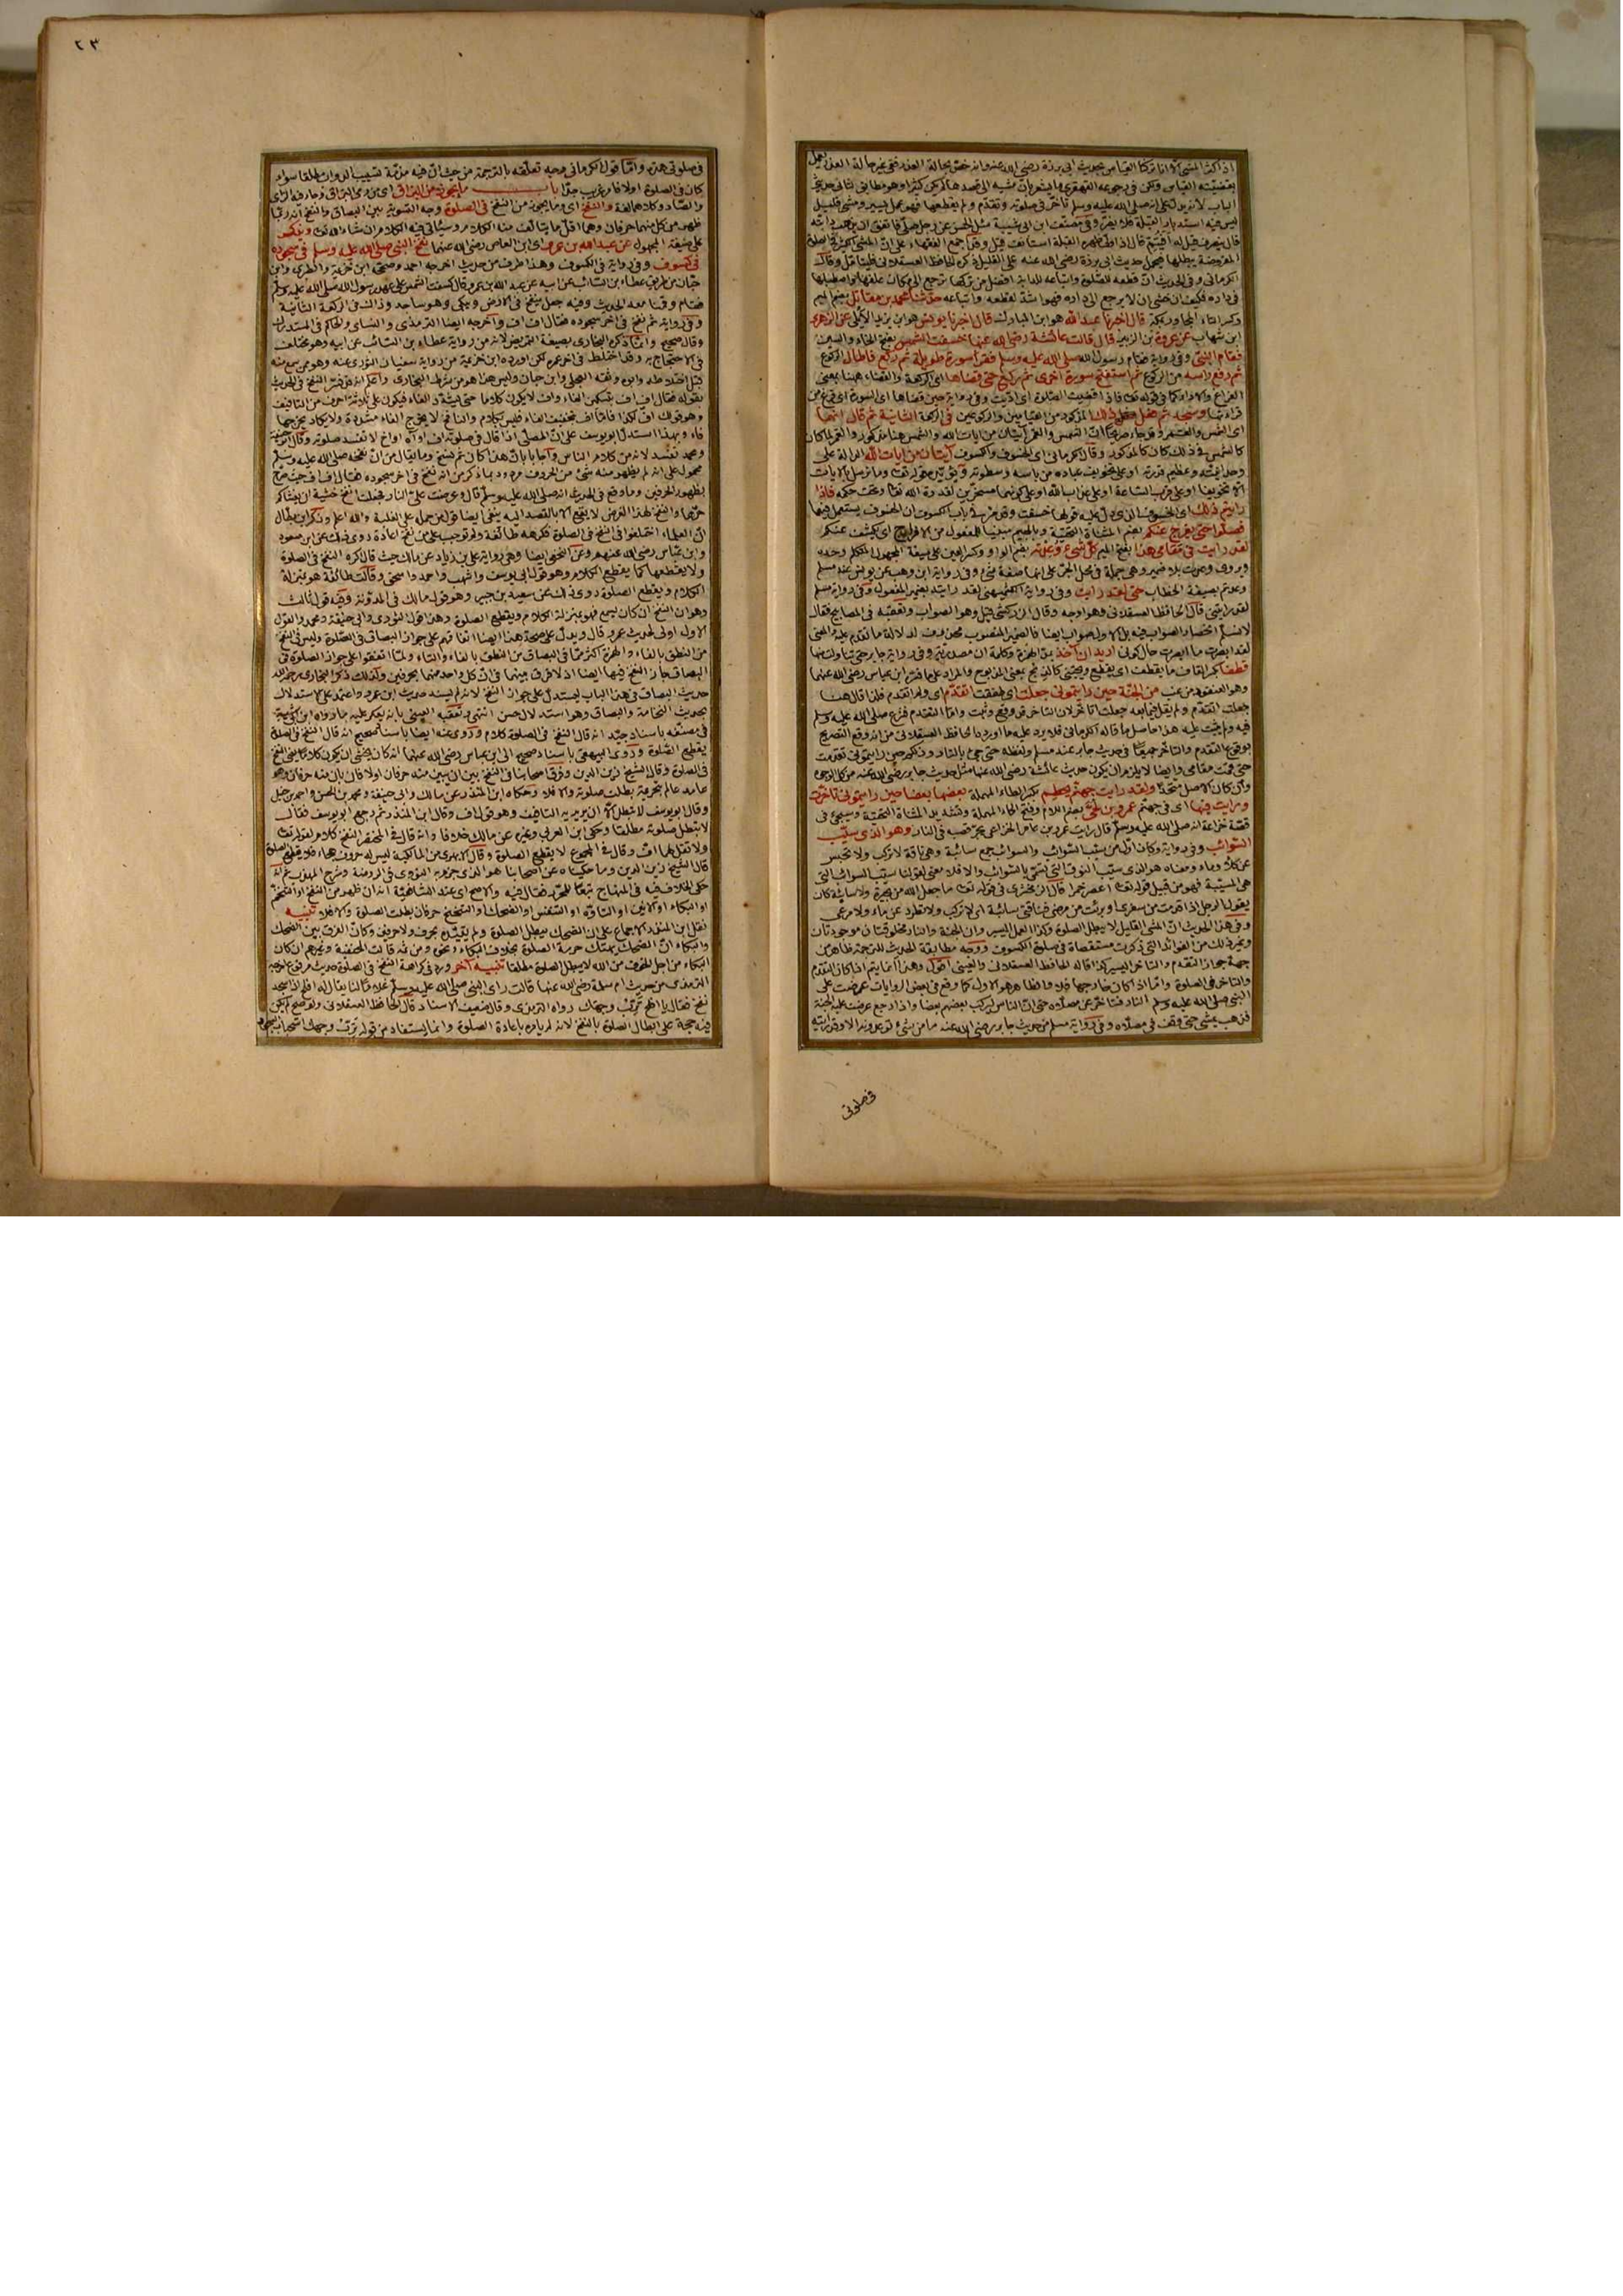 اذا كثر المشى
بقضيته القياس ولكن فى رجوعه القهقرى ما يشعر بان مشيه الى قصدها لم يكن كثيرا وهو مطابق لثانى حديثى
الباب لانه يدل على انه صلى الله عليه وسلم تأخر فى صلوته وتقدم ولم يقطعها فهو عمل يسير ومشى قليل
ليس فيه استدبار القبلة فلا يضر وفى مصنف ابن ابى شيبة سئل الحسن عن رجل صلى فاشفق ان يذهب دابته
قال ينصرف قيل له افيتم قال اذا ولى ظهره القبلة استانف
المفروضة يبطلها فيحمل حديث ابى برزة رضى الله عنه على القليل
الكرمانى وفى الحديث ان قطعه للصلوة واتباعه للدابة افضل من تركها ترجع الى مكان علفها
فى داره فكيف ان خشى ان لا يرجع الى داره فهو اشد لقطعه واتباعه حدثنا محمد بن مقاتل بضم الميم
وكسر التاء المجاور بمكة قال اخبرنا عبد الله هو ابن المبارك قال اخبرنا يونس هو ابن يزيد الايلى عن الزهرى
ابن شهاب عن عروة بن الزبير قال قالت عائشة رضى الله عنها خسفت الشمس بفتح الخاء والسين
فقام النبى وفى رواية فقام رسول الله صلى الله عليه وسلم فقرأ سورة طويلة ثم ركع فاطال الركوع
ثم رفع راسه من الركوع ثم استفتح سورة اخرى ثم ركع حتى قضاها اى الركعة والقضاء ههنا بمعنى
الفراغ
قراءتها وسجد ثم فعل ذلك المذكور من القيامين والركوعين فى الركعة الثانية ثم قال انهما
اى الشمس والقمر
كالشمس فى ذلك كان كالمذكور وقال الكرمانى اى الخسوف والكسوف آيتان من ايات الله الدالة على
وحدانيته وعظيم قدرته او على تخويف عباده من باسه وسطوته
الا تخويفا او على قرب الساعة او على عذاب الله او على كونهما مسخرين لقدرة الله فاذا
رايتم ذلك اى الخسوف الذى دل عليه قولها خسفت
فصلوا حتى يفرج عنكم بضم المثناة التحتية وبالجيم مبنيا للمفعول من الافراج اى يكشف عنكم
لقد رايت فى مقامى هذا بفتح الميم كل شئ وعدته بضم الواو وكسر العين على صيغة المجهول المتكلم وحده
ويروى وعدت بلا ضمير وهى جملة فى محل الجر على انها صفة شئ وفى رواية ابن وهب عن يونس عند مسلم
وعدتم بصيغة الخطاب حتى لقد رايت وفى رواية الكشميهنى لقد رايته بضمير المفعول وفى رواية مسلم
لقد رايتنى قال الحافظ العسقلانى وهو اوجه وقال الزركشى قيل وهو الصواب وتعقبه فى المصابيح فقال
لا نسلم انحصار الصواب فيه بل الاول صواب ايضا فالضمير المنصوب محذوف لدلالة ما تقدم عليه والمعنى
لقد ابصرت ما ابصرت حال كونى اريد ان آخذ بمد الهمزة وكلمة ان مصدرية وفى رواية جابر حتى تناولت منها
قطفا بكسر القاف ما يقطف اى يقطع ويجتنى كالذبح بمعنى المذبوح والمراد على ما فسره ابن عباس رضى الله عنهما
وهو العنقود من عنب من الجنة حين رايتمونى جعلت اى طفقت اتقدم اى ولم اتقدم فلذا قال هنا
جعلت اتقدم ولم يقل فيما بعد جعلت اتأخر لان التاخر قد وقع وثبت واما التقدم فنزع صلى الله عليه وسلم
فيه ولم يثبت عليه هذا حاصل ما قاله الكرمانى فلا يرد عليه ما اورده الحافظ العسقلانى من انه وقع التصريح
بوقوع التقدم والتأخر جميعا فى حديث جابر عند مسلم ولفظه حتى جئ بالنار وذلكم حين رايتمونى
حتى قمت مقامى وايضا لا يلزم ان يكون حديث عائشة رضى الله عنها مثل حديث جابر رضى الله عنه من كل الوجوه
وان كان الاصل متحدا ولقد رايت جهنم يحطم بكسر الطاء المهملة بعضها بعضا حين رايتمونى تاخرت
ورايت فيها اى فى جهنم عمرو بن لحى بضم اللام وفتح الحاء المهملة وتشديد المثناة التحتية وسيجئ فى
قصة خزاعة انه صلى الله عليه وسلم قال رايت عمرو بن عامر الخزاعى يجر قصبه فى النار وهو الذى سيب
السوائب وفى رواية وكان اول من سيب السوائب والسوائب جمع سائبة وهى ناقة لا تركب ولا تحبس
عن كلأ وماء ومعناه هو الذى سيب النوق التى تسمى بالسوائب والا فلا معنى لقولنا سيب السوائب التى
هى المسيبة فهو من قبيل قوله تعالى اعصر خمرا قال الزمخشرى فى قوله تعالى ما جعل الله من بحيرة ولا سائبة كان
يقول الرجل اذا قدمت من سفرى او برئت من مرضى فناقتى سائبة اى لا تركب ولا تطرد عن ماء ولا مرعى
وفى هذا الحديث ان المشى القليل لا يبطل الصلوة وكذا العمل اليسير وان الجنة والنار مخلوقتان موجودتان
وغير ذلك من الفوائد التى ذكرت مستقصاة فى صلوة الكسوف ووجه مطابقة الحديث للترجمة ظاهر من
جهة جواز التقدم والتاخر اليسير كذا قاله الحافظ العسقلانى والعينى اقول وهذا انما يتم اذا كان التقدم
والتاخر فى الصلوة واما اذا كان خارجها فلا والظاهر هو الاول كما وقع فى بعض الروايات عرضت على
النبى صلى الله عليه وسلم النار فتأخر عن مصلاه حتى ان الناس ليركب بعضهم بعضا واذا رجع عرضت عليه الجنة
فذهب يمشى حتى وقف فى مصلاه وفى رواية مسلم من حديث جابر رضى الله عنه ما من شئ توعدونه الا وقد رايته
فى صلوتى
٢٣
فى صلوتى هذه واما قول الكرمانى وجه تعلقه بالترجمة من حيث ان فيه مذمة تسييب الدواب مطلقا سواء
كان فى الصلوة اولا فغريب جدا باب ما يجوز من البزاق
والصاد وكلاهما لغة والنفخ اى وما يجوز من النفخ فى الصلوة وجه التسوية بين البصاق والنفخ انه ربما
ظهر من كل منهما حرفان وهما اقل ما يتالف منه الكلام وسياتى فيه الكلام ان شاء الله تعالى ويذكر
على صيغة المجهول عن عبد الله بن عمرو اى ابن العاص رضى الله عنهما نفخ النبى صلى الله عليه وسلم فى سجوده
فى كسوف وفى رواية فى الكسوف وهذا طرف من حديث اخرجه احمد وصححه ابن خزيمة والطبرى وابن
حبان من طريق عطاء بن السائب عن ابيه عن عبد الله بن عمرو قال كسفت الشمس على عهد رسول الله صلى الله عليه وسلم
فقام وقمنا معه الحديث وفيه جعل ينفخ فى الارض ويبكى وهو ساجد وذلك فى الركعة الثانية
وفى رواية ثم نفخ فى اخر سجوده فقال اف اف واخرجه ايضا الترمذى والنسائى والحاكم فى المستدرك
وقال صحيح وانما ذكره البخارى بصيغة التمريض لانه من رواية عطاء بن السائب عن ابيه وهو مختلف
فى الاحتجاج به وقد اختلط فى اخر عمره لكن اورده ابن خزيمة من رواية سفيان الثورى عنه وهو ممن سمع منه
قبل اختلاطه وابوه وثقه العجلى وابن حبان وليس هذا هو من شرط البخارى
بقوله فقال اف اف بتسكين الفاء واف لا يكون كلاما حتى يشدد الفاء فيكون على ثلاثة احرف من التافيف
وهو قولك اف لكذا فاما اف بتخفيف الفاء فليس بكلام والنافخ لا يخرج الفاء مشددة ولا يكاد يخرجها
فاء وبهذا استدل ابو يوسف على ان المصلى اذا قال فى صلوته اف او آه او اخ لا تفسد صلوته وقال ابو حنيفة
ومحمد تفسد لانه من كلام الناس واجابا بان هذا كان ثم نسخ وما يقال من ان نفخه صلى الله عليه وسلم
محمول على انه لم يظهر منه شئ من الحروف مردود بما ذكر من انه نفخ فى اخر سجوده فقال اف اف
بظهور الحرفين وما وقع فى الحديث انه صلى الله عليه وسلم قال وعرضت على النار فجعلت انفخ خشية ان يغشاكم
حرها والنفخ لهذا الغرض لا يقع الا بالقصد اليه ينفى ايضا قول من حمله على الغلبة والله اعلم وذكر ابن بطال
ان العلماء اختلفوا فى النفخ فى الصلوة فكرهه طائفة ولم توجب على من نفخ اعادة روى ذلك عن ابن مسعود
وابن عباس رضى الله عنهم وعن النخعى ايضا وهى رواية على بن زياد عن مالك حيث قال اكره النفخ فى الصلوة
ولا يقطعها كما يقطع الكلام وهو قول ابى يوسف واشهب واحمد واسحق وقالت طائفة هو بمنزلة
الكلام ويقطع الصلوة روى ذلك عن سعيد بن جبير وهو قول مالك فى المدونة وفيه قول ثالث
وهو ان النفخ ان كان يسمع فهو بمنزلة الكلام ويقطع الصلوة وهذا قول الثورى وابى حنيفة ومحمد والقول
الاول اولى لحديث عمرو قال ويدل على صحة هذا ايضا اتفاقهم على جواز البصاق فى الصلوة وليس فى النفخ
من النطق بالفاء والهمزة اكثر مما فى البصاق من النطق بالفاء والتاء ولما اتفقوا على جواز الصلوة فى
البصاق جاز النفخ فيها ايضا اذ لا فرق بينهما فى ان كل واحد منهما بحرفين ولذلك ذكر البخارى رحمه الله
حديث البصاق فى هذا الباب ليستدل على جواز النفخ لانه لم يسند حديث ابن عمرو واعتمد على الاستدلال
بحديث النخامة والبصاق وهو استدلال حسن انتهى وتعقبه العينى بانه يعكر عليه ما رواه ابن ابى شيبة
فى مصنفه باسناد جيد انه قال النفخ فى الصلوة كلام وروى عنه ايضا باسناد صحيح انه قال النفخ فى الصلوة
يقطع الصلوة وروى البيهقى باسناد صحيح الى ابن عباس رضى الله عنهما انه كان يخشى ان يكون كلاما يعنى النفخ
فى الصلوة وقال الشيخ زين الدين وفرق اصحابنا فى النفخ بين ان يبين منه حرفان اولا قال بان منه حرفان وهو
عامد عالم بتحريمه بطلت صلوته والا فلا وحكاه ابن المنذر عن مالك وابى حنيفة ومحمد بن الحسن واحمد بن حنبل
وقال ابو يوسف لا تبطل الا ان يريد به التافيف وهو قول اف وقال ابن المنذر ثم رجع ابو يوسف فقال
لا تبطل صلوته مطلقا وحكى ابن العربى وغيره عن مالك خلافا وانه قال فى المختصر النفخ كلام لقوله تعالى
ولا تقل لهما اف وقال فى المجموع لا يقطع الصلوة وقال الابهرى من المالكية ليس له حروف هجاء فلا يقطع الصلوة
قال الشيخ زين الدين وما حكيناه عن اصحابنا هو الذى جزم به النووى فى الروضة وشرح المهذب ثم انه
حكى الخلاف فيه فى المنهاج تبعا للمحرر فقال فيه والاصح اى عند الشافعية انه ان ظهر من النفخ او التنخم
او البكاء او الانين او التاوه او التنفس او الضحك او التنحنح حرفان بطلت الصلوة والا فلا تنبيه
نقل ابن المنذر الاجماع على ان الضحك يبطل الصلوة ولم يقيده بحرف ولا حرفين وكان الفرق بين الضحك
والبكاء ان الضحك يهتك حرمة الصلوة بخلاف البكاء ونحوه ومن ثمه قالت الحنفية وغيرهم ان كان
البكاء من اجل الخوف من الله لا يبطل الصلوة مطلقا تنبيه آخر ورد فى كراهة النفخ فى الصلوة حديث مرفوع اخرجه
الترمذى من حديث ام سلمة رضى الله عنها قالت رأى النبى صلى الله عليه وسلم غلاما لنا يقال له افلح اذا سجد
نفخ فقال يا افلح ترب وجهك رواه الترمذى وقال ضعيف الاسناد قال الحافظ العسقلانى ولو صح لم يكن
فيه حجة على ابطال الصلوة بالنفخ لانه لم يامره باعادة الصلوة وانما يستفاد من قوله ترب وجهك استحباب السجود